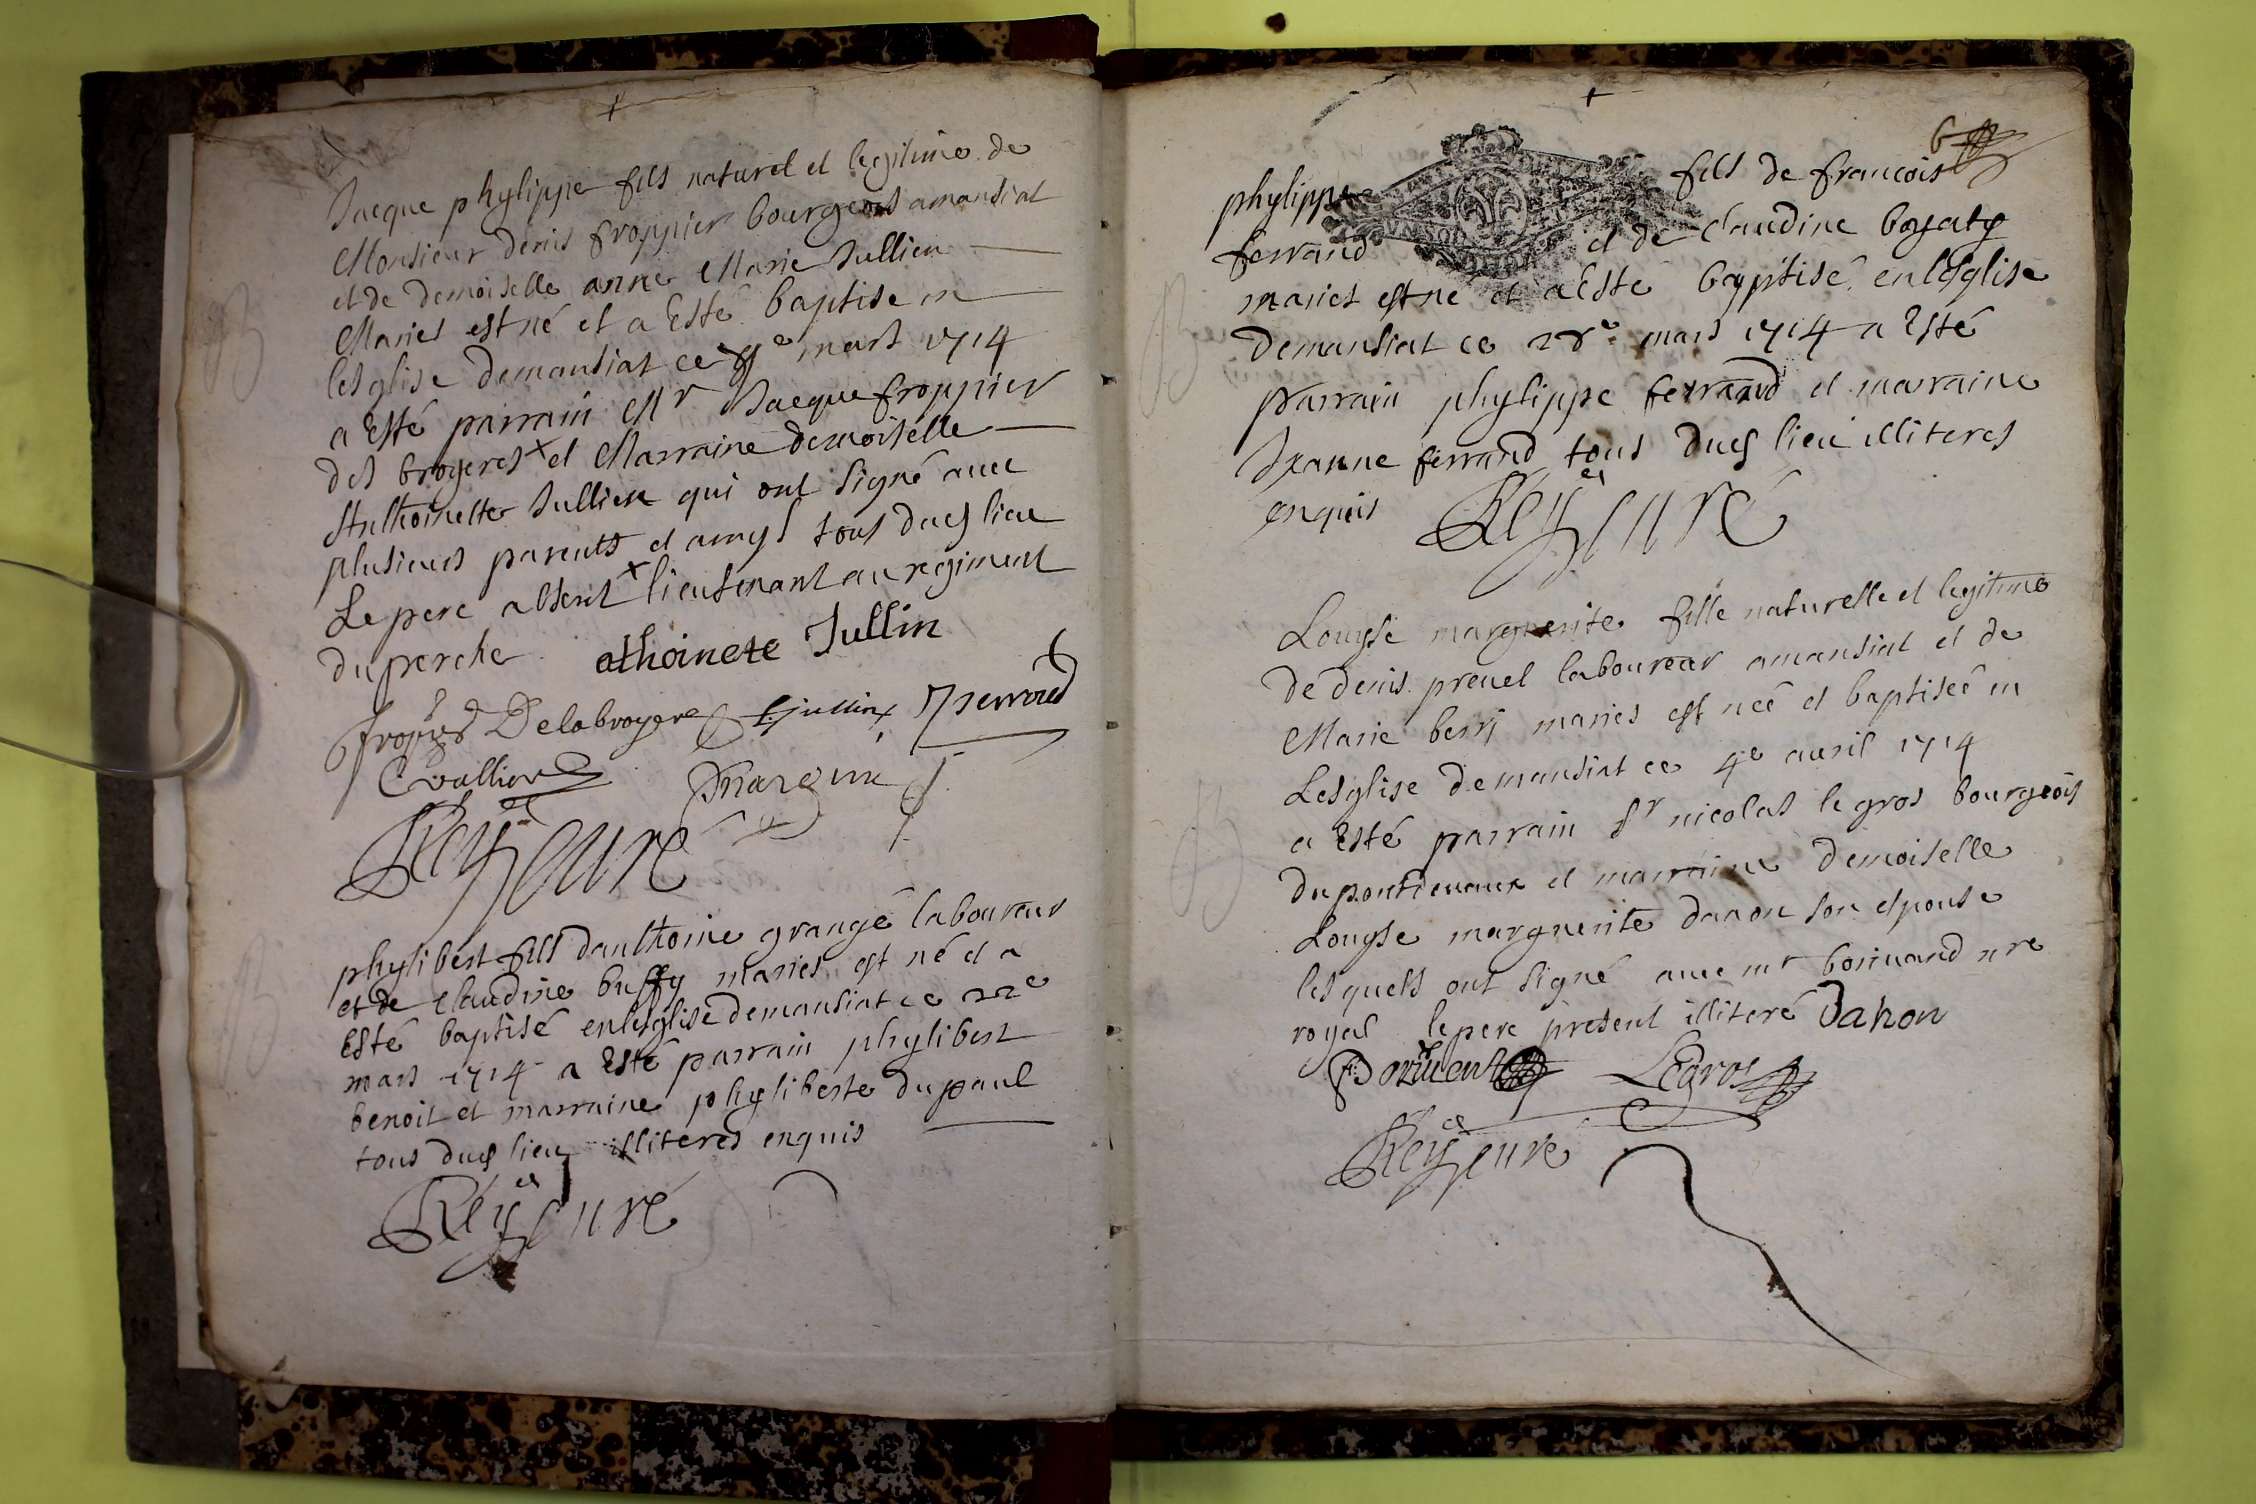 Jacque phylippe fils naturel et legitime de
Monsieur denis froppier bourgeois amansiat
et de demoiselle anne Marie Jullien
Maries est né et a Esté baptise en
lesglise demansiat ce mars 1714
a Esté parrain Mr Jacque froppier
des broyeres et Marraine demoiselle
Anthoinette Jullien qui ont signé avec
plusieurs parents et amys tous dud lieu
Le pere absent lieutenant au regiment
du perche athoinete Jullin
Delabroyere jullin perroud
C vallier
Rey curé
phylibert fils danthoine grangé laboureur
et de Claudine buffy maries est né et a
Esté baptisé en lesglise demansiat ce 22e
mars 1714 a Esté parrain phylibert
benoit et marraine phyliberte dupaul
tous dud lieu illiteres enquis
Rey curé
6
phylippe fils de francois
ferrand et de Claudine
maries est né et a Esté baptisé en lesglise
demansiat ce mars 1714 a Esté
parrain phylippe ferrand et maraine
Jeanne ferrand tous dud lieu illiteres
enquis
Rey curé
Louyse marguerite fille naturelle et legitime
de denis prevel laboureur amansiat et de
Marie berry maries est née et baptiseé en
Lesglise demansiat ce 4e avril 1714
a Esté parrain sr nicolas le gros bourgeois
du pontdevaux et marraine demoiselle
Louyse marguerite danon son espouse
lesquels ont signé avec mr borivand nre
royal le pere present illiteré Danon
Legros
Rey curé
VNSOL